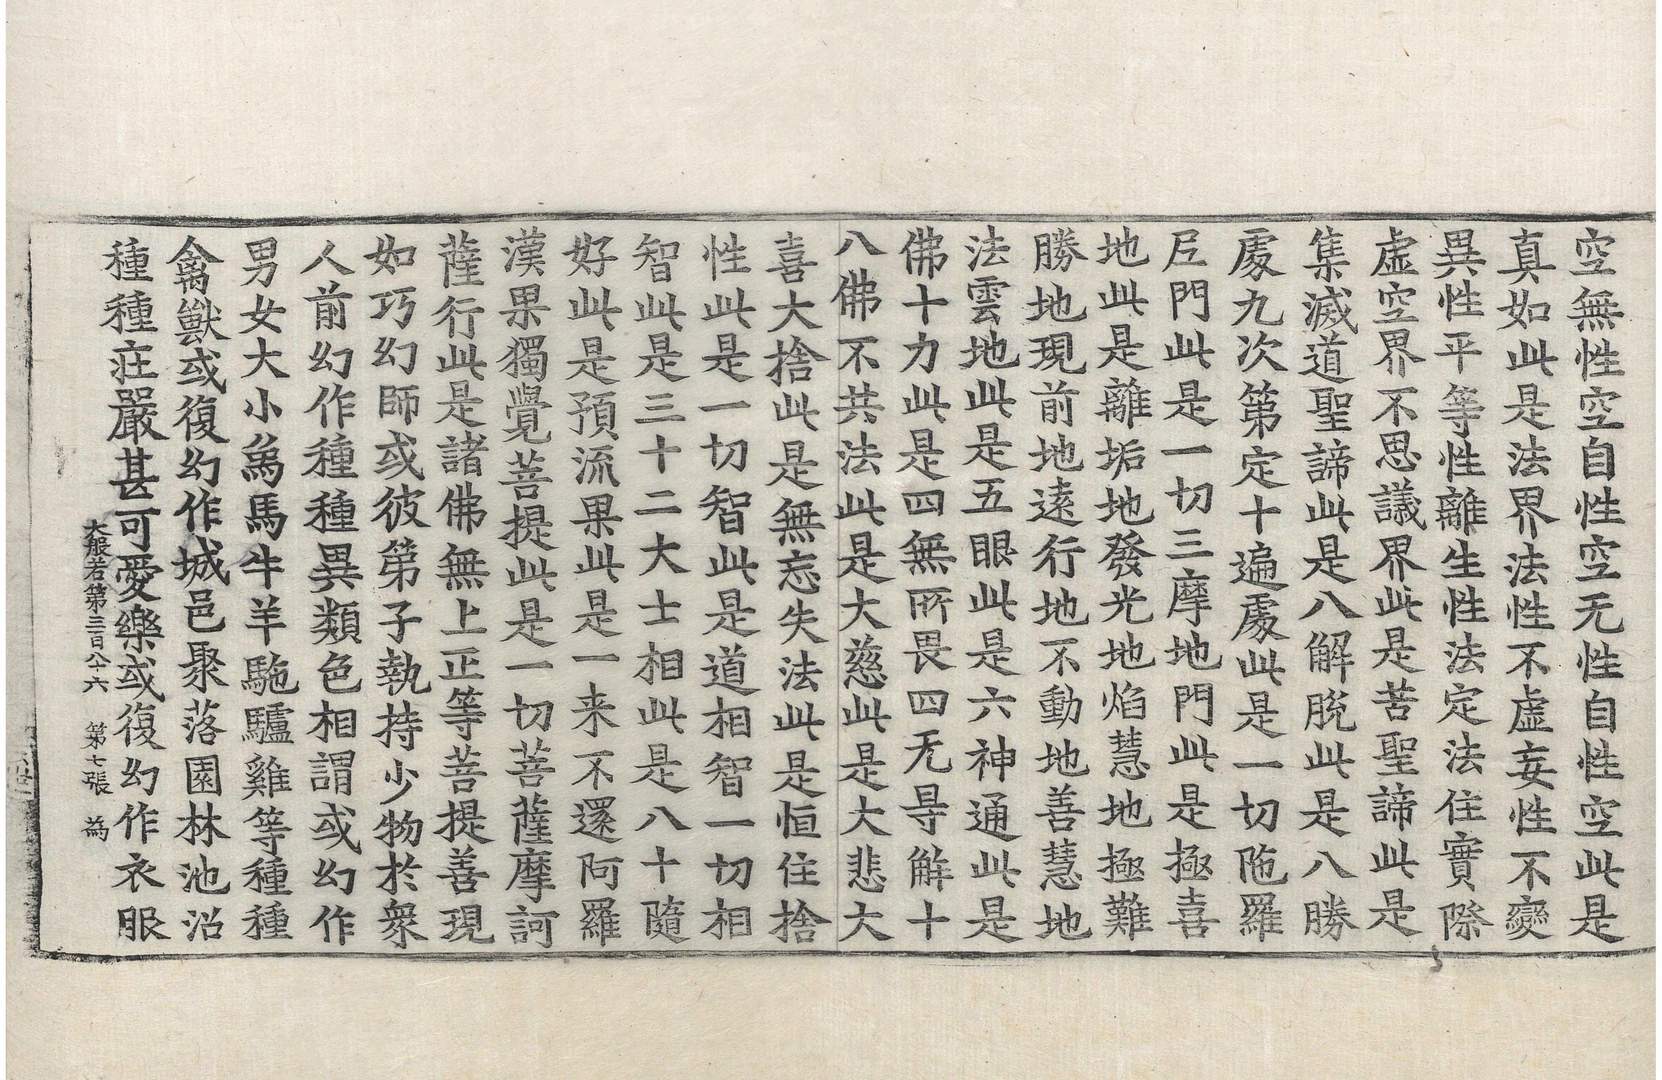 空無性空自性空无性自性空此是
真如此是法界法性不虛妄性不變
異性平等性離生性法定法住實際
虛空界不思議界此是苦聖諦此是
集滅道聖諦此是八解脫此是八勝
處九次第定十遍處此是一切陁羅
尼門此是一切三摩地門此是極喜
地此是離垢地發光地焰慧地極難
勝地現前地遠行地不動地善慧地
法雲地此是五眼此是六神通此是
佛十力此是四無所畏四无㝵解十
八佛不共法此是大慈此是大悲大
喜大捨此是無忘失法此是恒住捨
性此是一切智此是道相智一切相
智此是三十二大士相此是八十隨
好此是預流果此是一来不還阿羅
漢果獨覺菩提此是一切菩薩摩訶
薩行此是諸佛無上正等菩提善現
如巧幻師或彼弟子執持少物於衆
人前幻作種種異類色相謂或幻作
男女大小象馬牛羊駞驢雞等種種
禽獸或復幻作城邑聚落園林池沼
種種莊嚴甚可愛樂或復幻作衣服
大般若第三百八十六　第七張　為